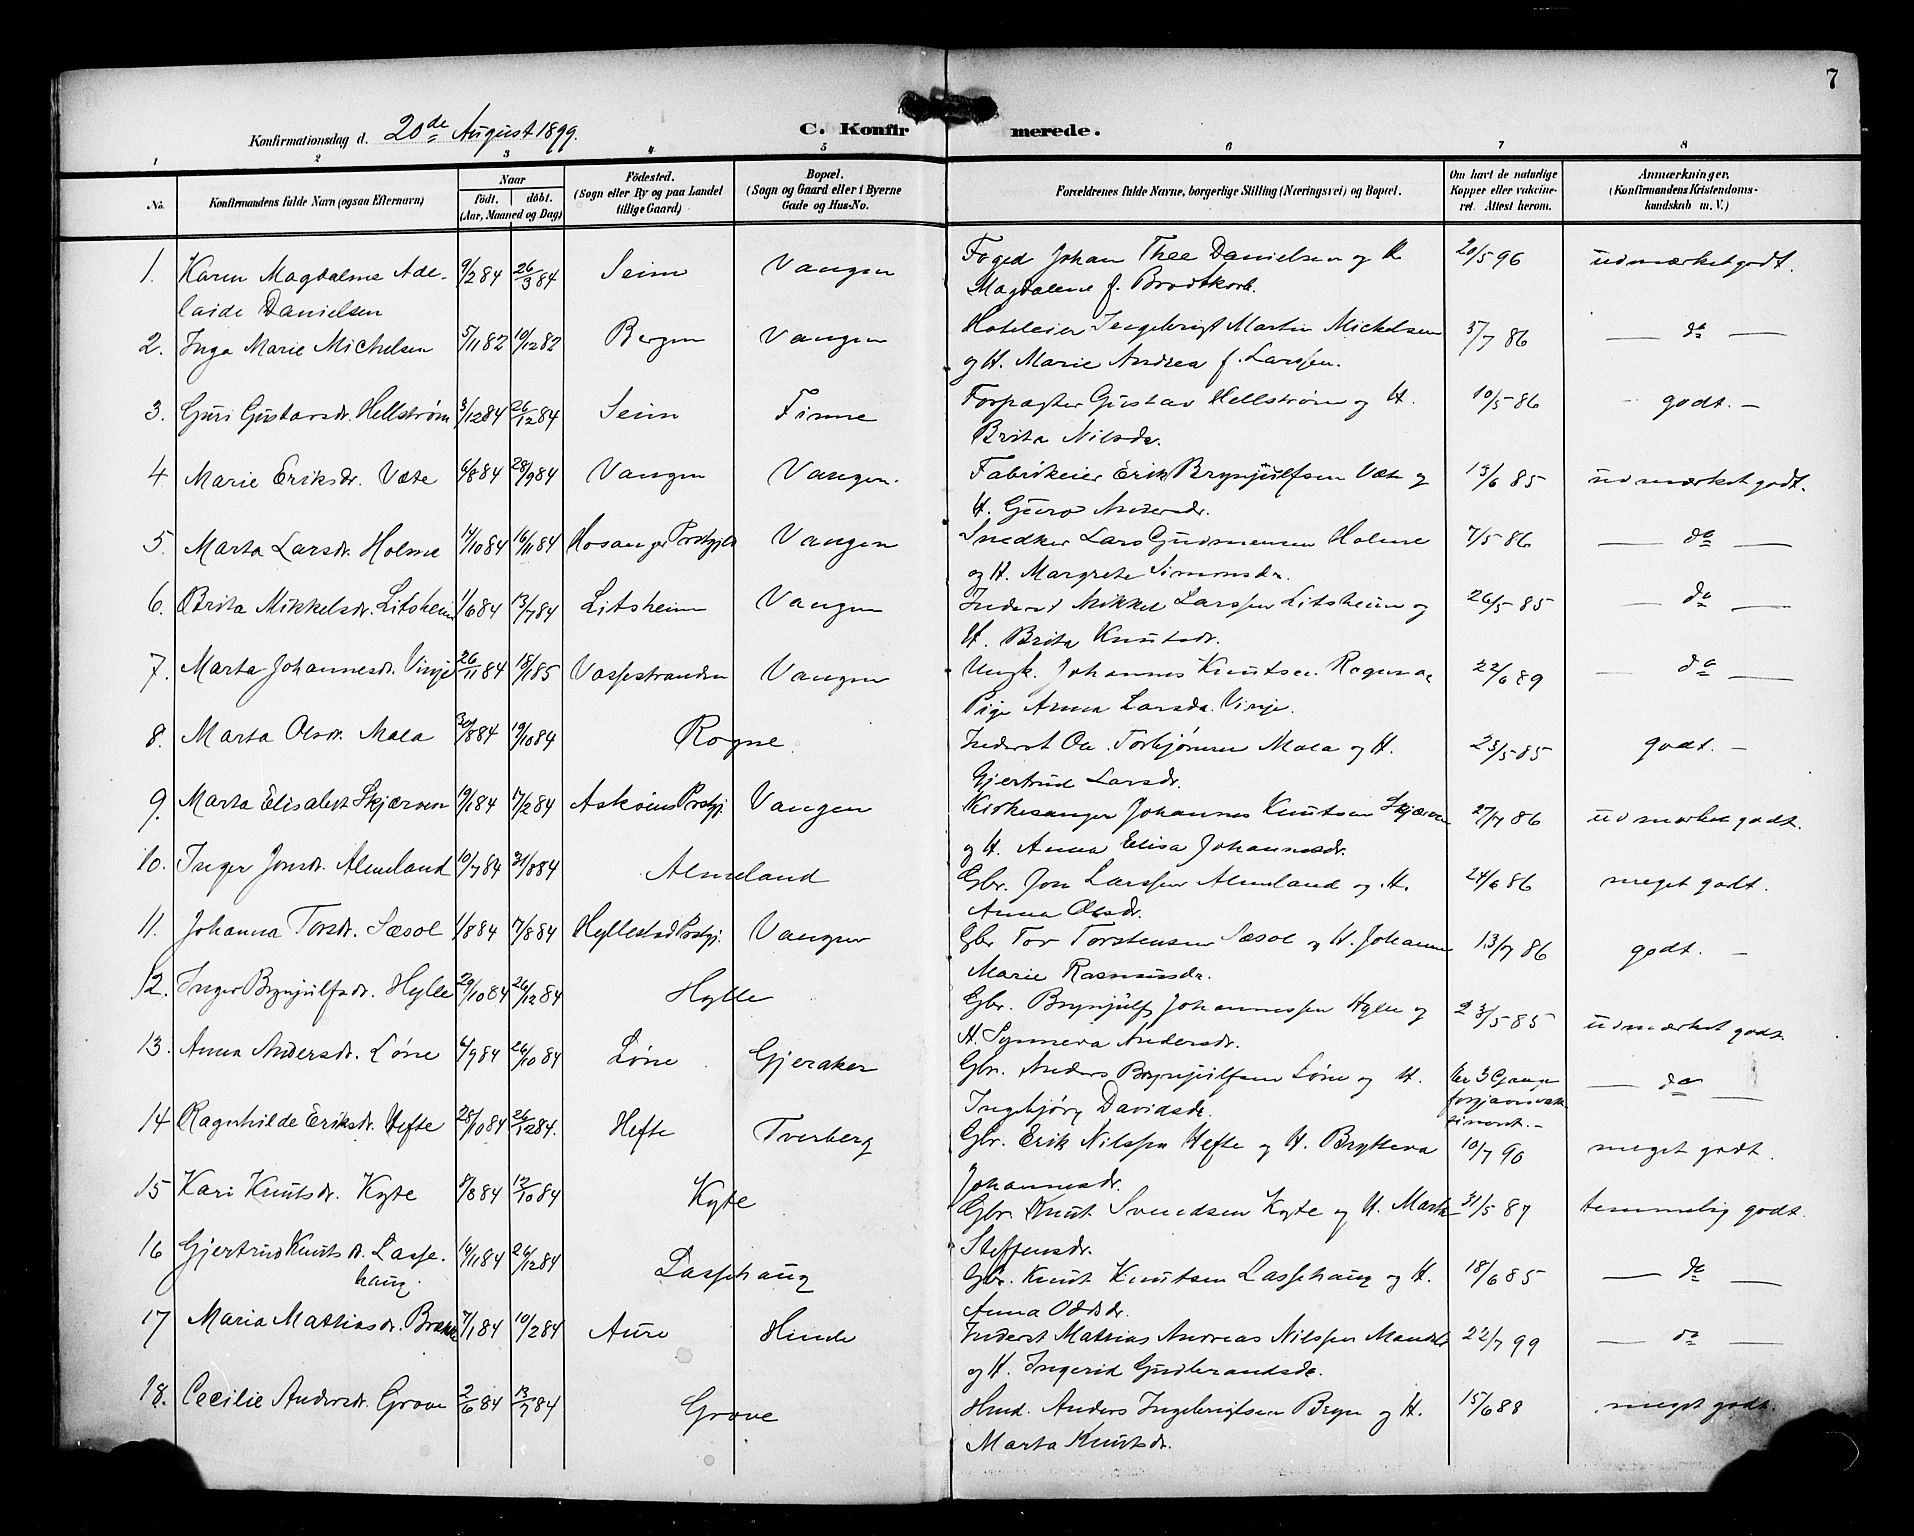 7
Konfirmationsdag d. 20de August 1899.
C. Konfirmerede.
1 2 3 4 5 6 7 8
No.
Konfirmandens fulde Navn (ogsaa Efternavn)
Naar
født. døbt.
(Aar, Maaned og Dag)
Födested.
(Sogn eller By og paa Landet
tillige Gaard)
Bopæl.
(Sogn og Gaard eller i Byerne
Gade og Hus-No.
Forældrenes fulde Navne, borgerlige Stilling (Næringsvei) og Bopæl.
Om havt de naturlige
Kopper eller vakcine-
ret. Attest herom.
Anmærkninger.
(Konfirmandens Kristendoms-
kundskab m. V.)
1. Karen Magdalene Ade- 9/2 84 26/3 84 Seim Vangen Foged Johan Thee Danielsen og H. 20/5 96 udmærket godt.
laide Danielsen Magdalene f. Brodtkorb.
2. Inga Marie Michelsen 5/11 82 10/12 82 Bergen Vangen Hoteleier Ingebrigt Martin Michelsen 5/7 86 — do —
og H. Marie Andrea f. Larssen.
3. Guri Gustavsdr. Hellstrøm 3/12 84 26/12 84 Seim Finne Forpagter Gustav Hellstrøm og H. 10/5 86 - godt. -
Brita Nilsdr.
4 Marie Eriksdr. Væte 6/8 84 28/9 84 Vangen Vangen. Fabrikeier Erik Brynjulfsen Væte og 13/6 85 udmærket godt.
H. Guro Andersdr.
5. Marta Larsdr. Holme 14/10 84 16/11 84 Hosanger Prstgjld Vangen Snedker Lars Gudmunsen Holme 7/5 86 — do —
og H. Margrete Simonsdr.
6. Brita Mikkelsdr. Litsheim 1/6 84 13/7 84 Litsheim Vangen Inderst Mikkel Larssen Litsheim og 26/5 85 — do —
H. Brita Knutsdr.
7. Marta Johannesdr. Vinje 26/11 84 18/1 85 Vossestranden Vangen Ungk. Johannes Knutsen Rogne og 22/6 89 — do —
Pige Anna Larsdr. Vinje.
8. Marta Olsdr. Mala 30/8 84 19/10 84 Rogne. Inderst Ola Torbjørnsen Mala og H. 23/5 85 godt. -
Gjertrud Larsdr.
9. Marta Elisabet Skjerven 19/1 84 17/2 84 Askøens Prstgj. Vangen Kirkesanger Johannes Knutsen Skjerven 27/7 86 udmærket godt.
og H. Anna Elisa Johannesdr.
10. Inger Jonsdr. Almeland 10/7 84 31/8 84 Almeland Gbr. Jon Larssen Almeland og H. 24/6 86 meget godt.
Anna Olsdr.
11. Johanna Torsdr. Sæsol 1/8 84 17/8 84 Hyllestad Prstgj. Vangen Gbr Tor Torstensen Sæsol og H. Johanna 13/7 86 godt. -
Marie Rasmusdr.
12. Inger Brynjulfsdr. Hylle 29/10 84 26/12 84 Hylle Gbr. Brynjulf Johannessen Hylle og 23/5 85 udmærket godt.
H. Synneva Andersdr.
13. Anna Andersdr. Løne 6/9 84 26/10 84 Løne Gjeraker Gbr. Anders Brynjulfsen Løne og H. Er 3 Gange — do —
Ingebjørg Davidsdr. forgjæves vak-
cineret. -
14 Ragnhilde Eriksdr. Hefte 28/10 84 26/12 84. Hefte Tverberg Gbr. Erik Nilssen Hefte og H. Brytteva 10/7 90 meget godt.
Johannesdr.
15 Kari Knutsdr. Kyte 8/8 84 12/10 84 Kyte Gbr. Knut Svendsen Kyte og H. Marta 31/5 87 temmelig godt.
Steffensdr.
16 Gjertrud Knutsdr. Lasse- 16/11 84 26/12 84 Lassehaug Gbr. Knut Knutsen Lassehaug og H. 18/6 85 — do —
haug. Anna Oddsdr.
17 Maria Mathiasdr. 7/1 84 10/2 84 Aure Hinde Inderst Mathias Andreas Nilssen 22/7 99 — do —
og H. Ingerid Gudbrandsdr.
18. Cecilie Andersdr. Grove 2/6 84 13/7 84 Grove Hmd. Anders Ingebrigtsen Bryn og H. 15/6 88 meget godt.
Marta Knutsdr.